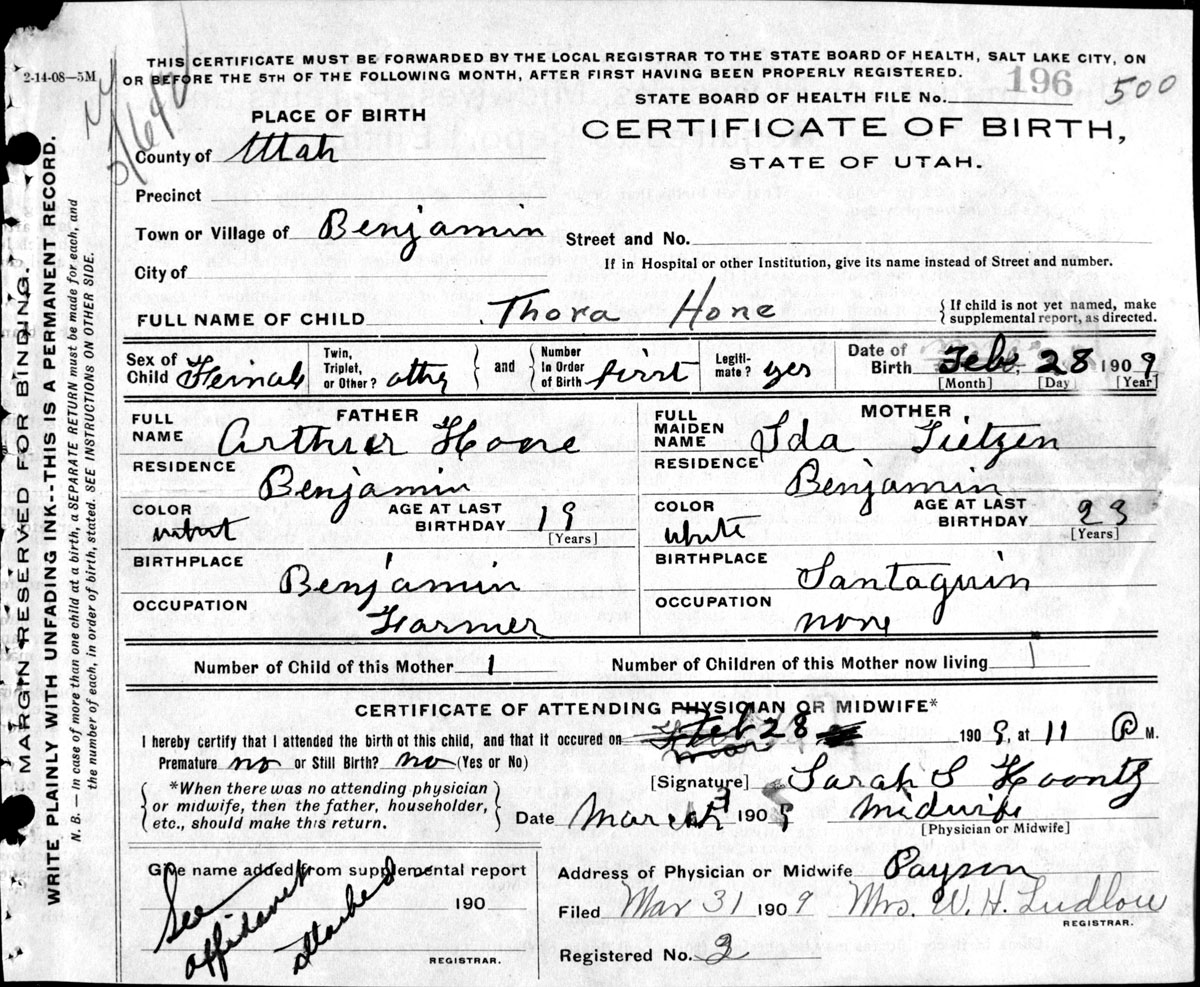 THIS CERTIFICATE MUST BE FORWARDED BY THE LOCAL REGISTRAR TO THE STATE BOARD OF HEALTH, SALT LAKE CITY, ON
2-14-08—5M
OR BEFORE THE 5TH OF THE FOLLOWING MONTH, AFTER FIRST HAVING BEEN PROPERLY REGISTERED.
STATE BOARD OF HEALTH FILE No. 196 500
PLACE OF BIRTH
CERTIFICATE OF BIRTH,
STATE OF UTAH.
County of Utah
Precinct
Town or Village of Benjamin Street and No.
City of If in Hospital or other Institution, give its name instead of Street and number.
FULL NAME OF CHILD Thora Hone { If child is not yet named, make supplemental report, as directed.
Sex of Child Female Twin, Triplet, or Other? and Number In Order of Birth first Legiti-mate? yes Date of Birth Feb. 28 1909
[Month] [Day] [Year]
FATHER MOTHER
FULL NAME Arthur Hoone FULL MAIDEN NAME Ida Tietzen
RESIDENCE Benjamin RESIDENCE Benjamin
COLOR AGE AT LAST BIRTHDAY 19 [Years] COLOR white AGE AT LAST BIRTHDAY 23 [Years]
BIRTHPLACE Benjamin BIRTHPLACE Santaquin
OCCUPATION Farmer OCCUPATION none
Number of Child of this Mother 1 Number of Children of this Mother now living 1
CERTIFICATE OF ATTENDING PHYSICIAN OR MIDWIFE*
I hereby certify that I attended the birth ot this child, and that it occured on Feb 28 1909, at 11 P M.
Premature no or Still Birth? no (Yes or No)
[Signature] Sarah S Koontz
*When there was no attending physician
or midwife, then the father, householder,
etc., should make this return.
Date March 3 1909 Midwife
[Physician or Midwife]
Give name added from supplemental report
190
See affidavit attached
REGISTRAR.
Address of Physician or Midwife Payson
Filed Mar 31 1909 Mrs. W. H. Ludlow
REGISTRAR.
Registered No. 3
MARGIN RESERVED FOR BINDING.
WRITE PLAINLY WITH UNFADING INK--THIS IS A PERMANENT RECORD.
N. B. — In case of more than one child at a birth, a SEPARATE RETURN must be made for each, and
the number of each, in order of birth, stated. SEE INSTRUCTIONS ON OTHER SIDE.